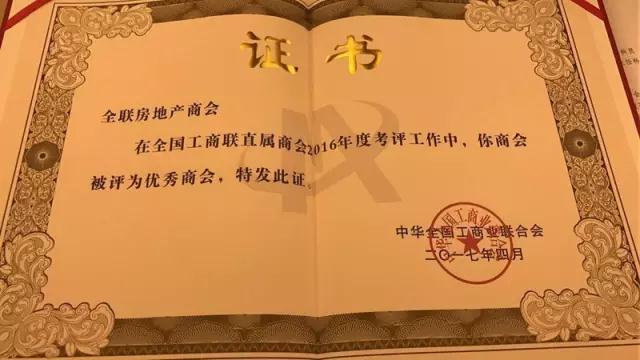 证书
全联房地产商会
在全国工商联直属商会2016年度考评工作中，你商会
被评为优秀商会，特发此证。
中华全国工商业联合会
二〇一七年四月
中华全国工商业联合会